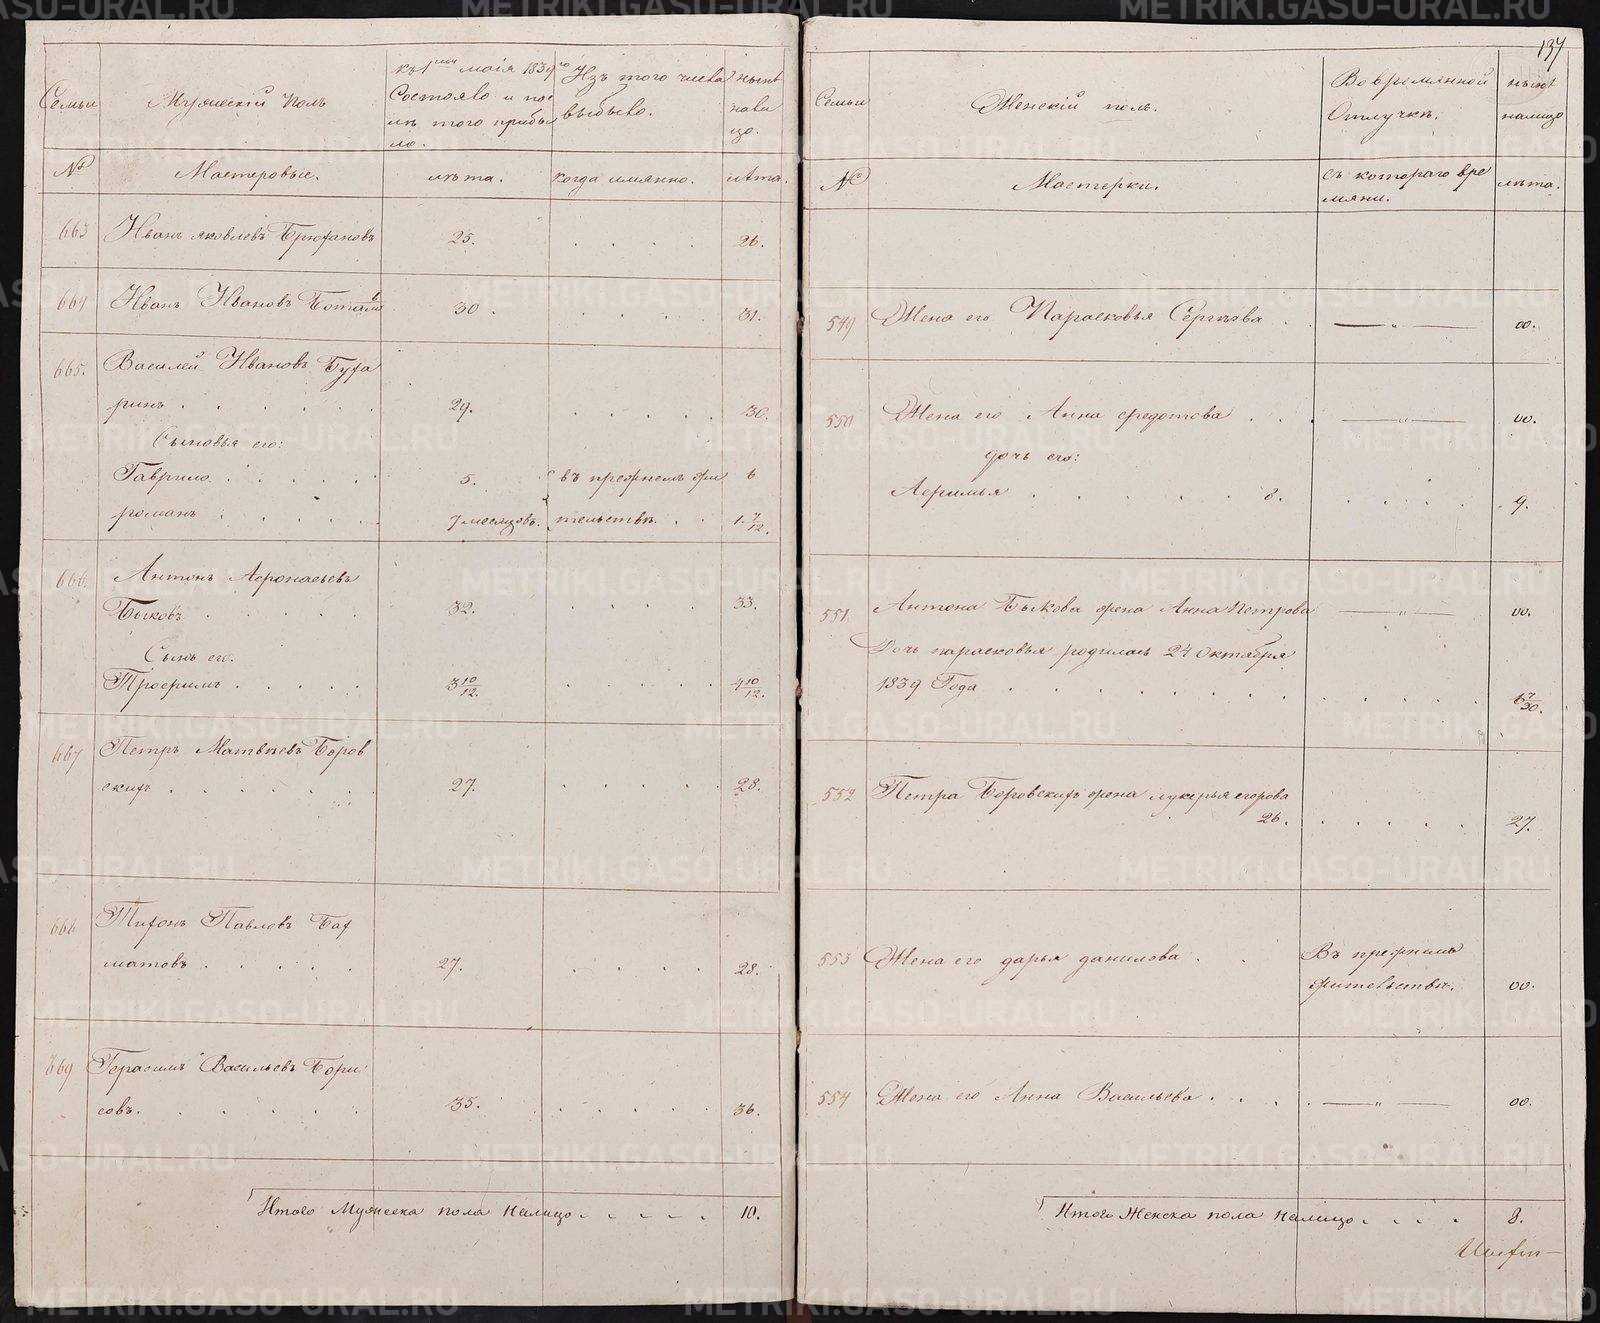 137
Семьи
Мужескій Полъ
къ 1 мая 1839го
Состояло и по
слѣ того прибы
ло.
Изъ того числа
выбыло.
ныне
нали
цо.
№
Мастеровые.
лѣта.
когда имянно.
лѣта.
663
Иванъ яковлевъ Трюхановъ
25.
26.
664
Иванъ Ивановъ
30.
31.
665.
Василей Ивановъ Буха
ринъ
29.
30.
Сыновья его:
Гаврило
5.
въ прежнемъ жи
6
романъ
7 месяцовъ.
тельствѣ.
1 7/12.
666
Антонъ Афонасьевъ
Быковъ
32.
33.
Сынъ его.
Трофимъ
3 10/12.
4 10/12.
667
Петръ Матвѣевъ Боров
скихъ
27.
28.
668
Тихонъ Павловъ Бах
матовъ
27.
28.
669
Герасимъ Васильевъ Бори
совъ.
35.
36.
Итого Мужеска пола налицо
10.
Семьи
Женскій полъ.
Во времянной
Отлучкѣ.
ныне
налицо
№
Мастерки.
съ котораго вре
мяни.
лѣта.
549
Жена его Парасковья Сергѣева
— „ —
00.
550
Жена его Анна федотова
— „ —
00.
дочь его:
Афимья
8.
9.
551
Антона Быкова жена Анна Петрова
— „ —
00.
Дочь парасковья родилась 24 октября
1839 Года
6 7/30.
552
Петра Боровскихъ жена лукерья егорова
26.
27.
553
Жена его дарья данилова
Въ прежнемъ
жительствѣ.
00.
554
Жена его Анна Васильева
— „ —
00.
Итого Женска пола налицо
8.
METRIKI.GASO-URAL.RU